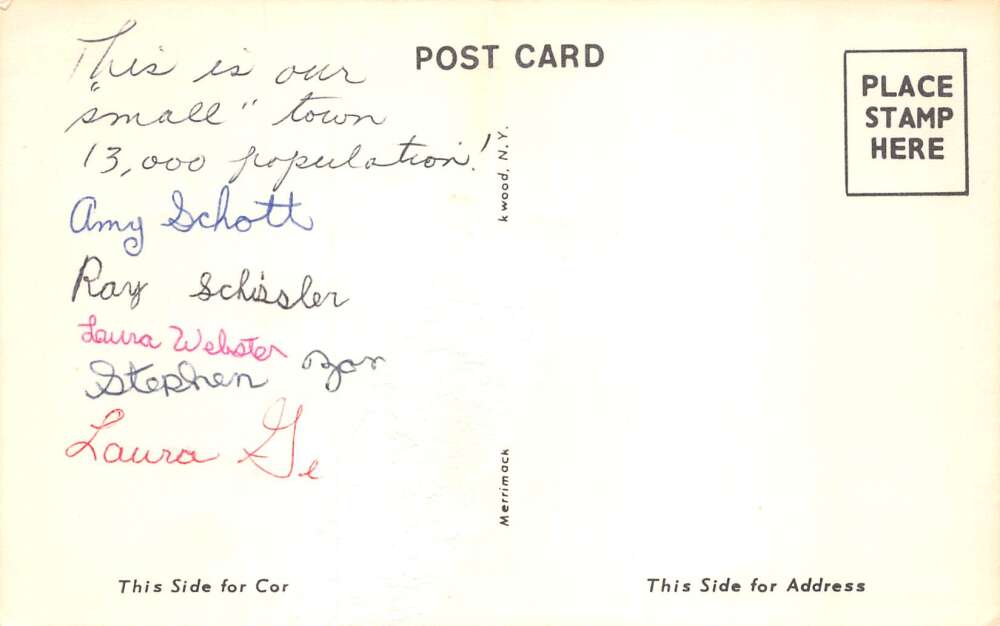 POST CARD
PLACE
STAMP
HERE
This is our
"small" town
13,000 population!
Amy Schott
Ray Schissler
Laura Webster
Stephen
Laura Ge
kwood, N.Y.
Merrimack
This Side for Cor
This Side for Address